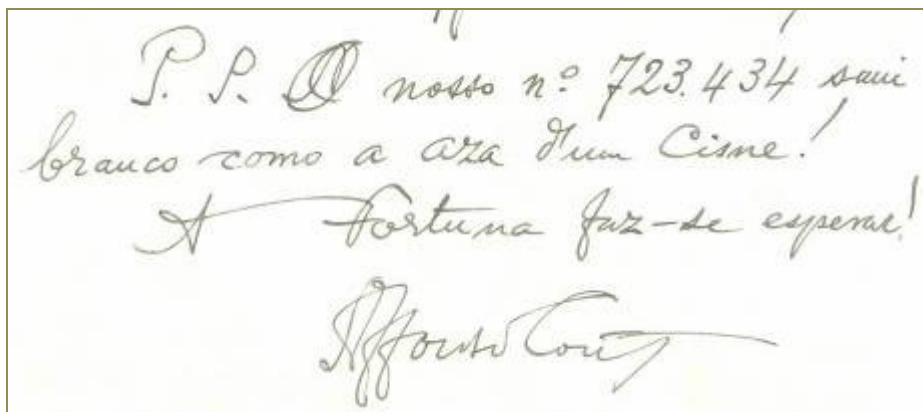 P. P. O nosso nº 723.434 saui
branco como a aza d'um Cisne!
A Fortuna faz-se esperar!
Affonso Cort